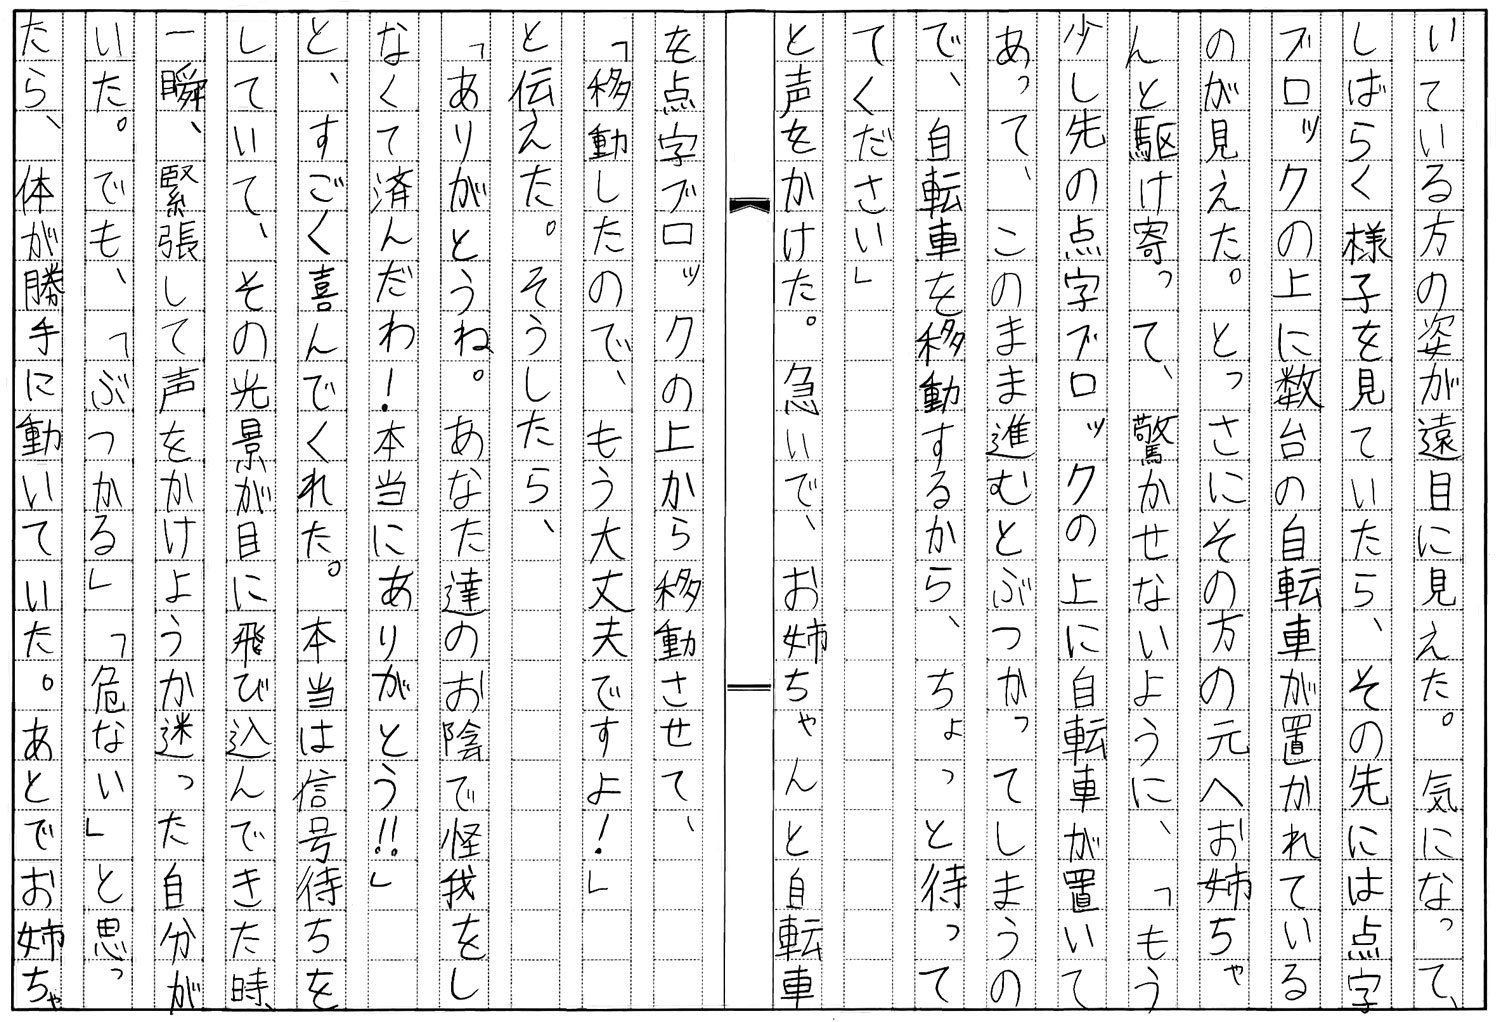 いている方の姿が遠目に見えた。気になって、
しばらく様子を見ていたら、その先には点字
ブロックの上に数台の自転車が置かれている
のが見えた。とっさにその方の元へお姉ちゃ
んと駆け寄って、驚かせないように、「もう
少し先の点字ブロックの上に自転車が置いて
あって、このまま進むとぶつかってしまうの
で、自転車を移動するから、ちょっと待って
てください」
と声をかけた。急いで、お姉ちゃんと自転車
を点字ブロックの上から移動させて、
「移動したので、もう大丈夫ですよ！」
と伝えた。そうしたら、
「ありがとうね。あなた達のお陰で怪我をし
なくて済んだわ！本当にありがとう!!」
と、すごく喜んでくれた。本当は信号待ちを
していて、その光景が目に飛び込んできた時、
一瞬、緊張して声をかけようか迷った自分が
いた。でも、「ぶつかる」「危ない」と思っ
たら、体が勝手に動いていた。あとでお姉ちゃ